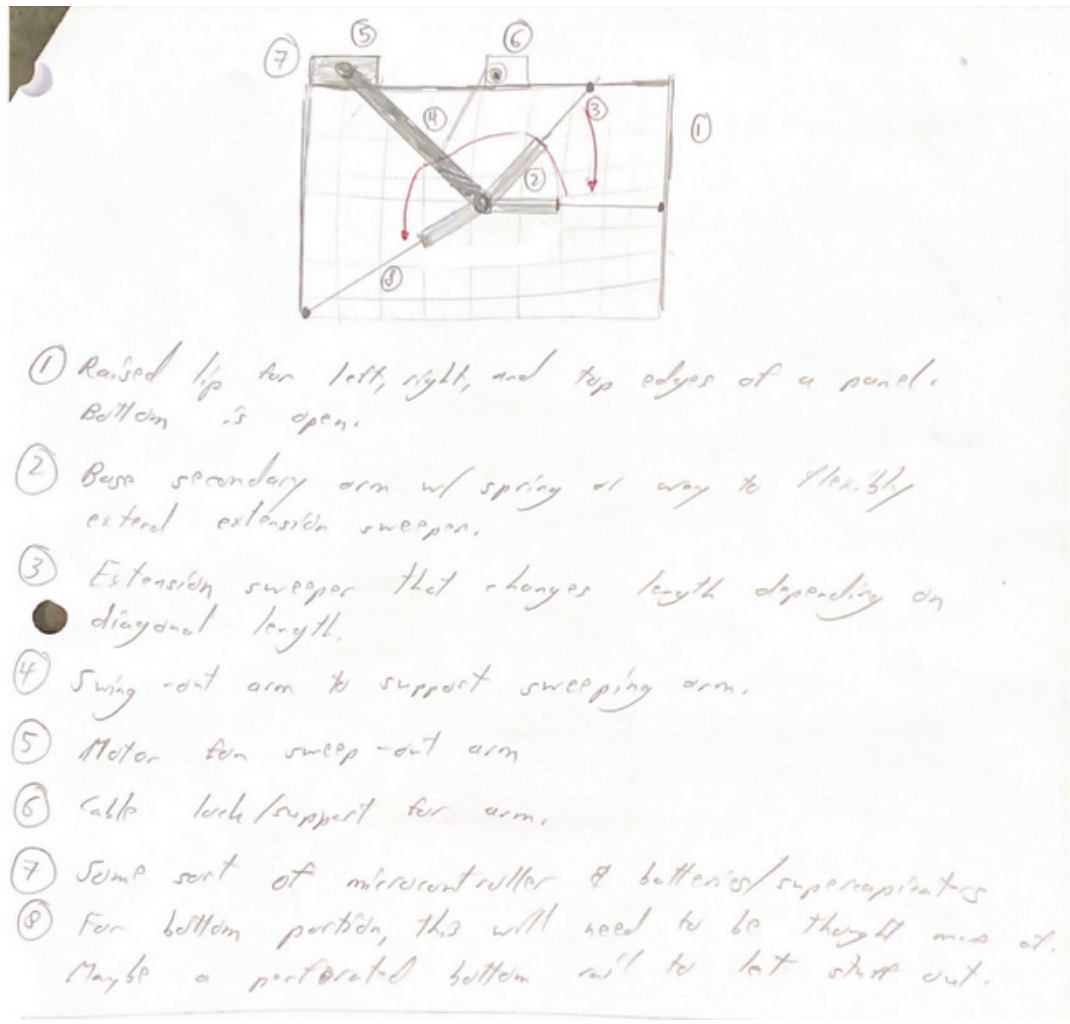 ⑦ ⑤ ⑥
④ ③ ①
②
⑧
① Raised lip for left, right, and top edges of a panel.
Bottom is open.
② Base secondary arm w/ spring or way to flexibly
extend extension sweeper.
③ Extension sweeper that changes length depending on
diagonal length.
④ Swing-out arm to support sweeping arm.
⑤ Motor for sweep-out arm
⑥ Cable lock/support for arm.
⑦ Some sort of microcontroller & batteries/supercapacitators
⑧ For bottom portion, this will need to be thought more of.
Maybe a perforated bottom rail to let stuff out.